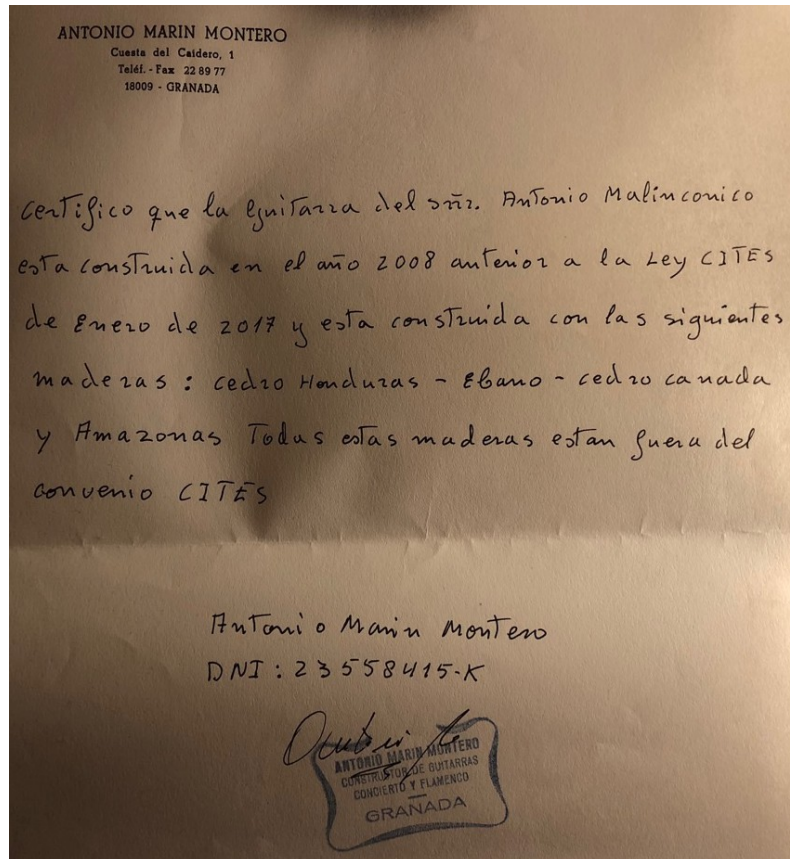 ANTONIO MARIN MONTERO
Cuesta del Caidero, 1
Teléf. - Fax 22 89 77
18009 - GRANADA
Certifico que la guitarra del sñr. Antonio Malinconico
esta construida en el año 2008 anterior a la Ley CITES
de Enero de 2017 y esta construida con las siguientes
maderas : cedro Honduras - Ebano - cedro canada
y Amazonas Todas estas maderas estan fuera del
convenio CITES
Antonio Marin Montero
DNI : 23558415-K
ANTONIO MARIN MONTERO
CONSTRUCTOR DE GUITARRAS
CONCIERTO Y FLAMENCO
GRANADA